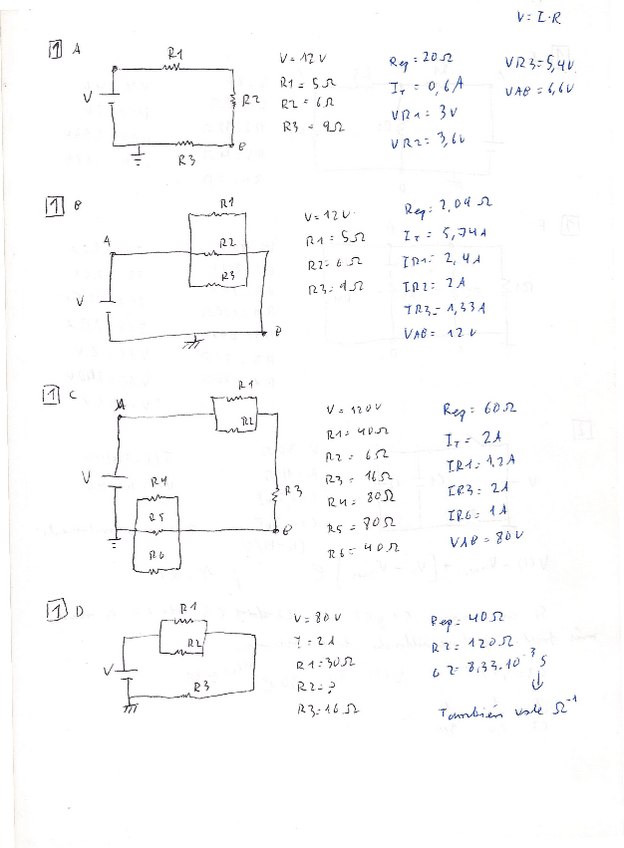 V = I·R
1 A
R1
V
R2
R3
B
V = 12V
R1 = 5Ω
R2 = 6Ω
R3 = 9Ω
Req = 20Ω
IT = 0,6A
VR1 = 3V
VR2 = 3,6V
VR3 = 5,4V
VAB = 6,6V
1 B
A
R1
R2
R3
V
B
V = 12V
R1 = 5Ω
R2 = 6Ω
R3 = 9Ω
Req: 2,09Ω
IT = 5,74A
IR1 = 2,4A
IR2 = 2A
IR3 = 1,33A
VAB = 12V
1 C
A
R1
R2
V
R4
R5
R6
R3
B
V = 120V
R1 = 40Ω
R2 = 6Ω
R3 = 16Ω
R4 = 80Ω
R5 = 80Ω
R6 = 40Ω
Req: 60Ω
IT = 2A
IR1 = 1,2A
IR3 = 2A
IR6 = 1A
VAB = 80V
1 D
R1
R2
V
R3
V = 80V
I = 2A
R1 = 30Ω
R2 = ?
R3 = 16Ω
Req = 40Ω
R2 = 120Ω
G2 = 8,33.10⁻³ S
También vale Ω⁻¹